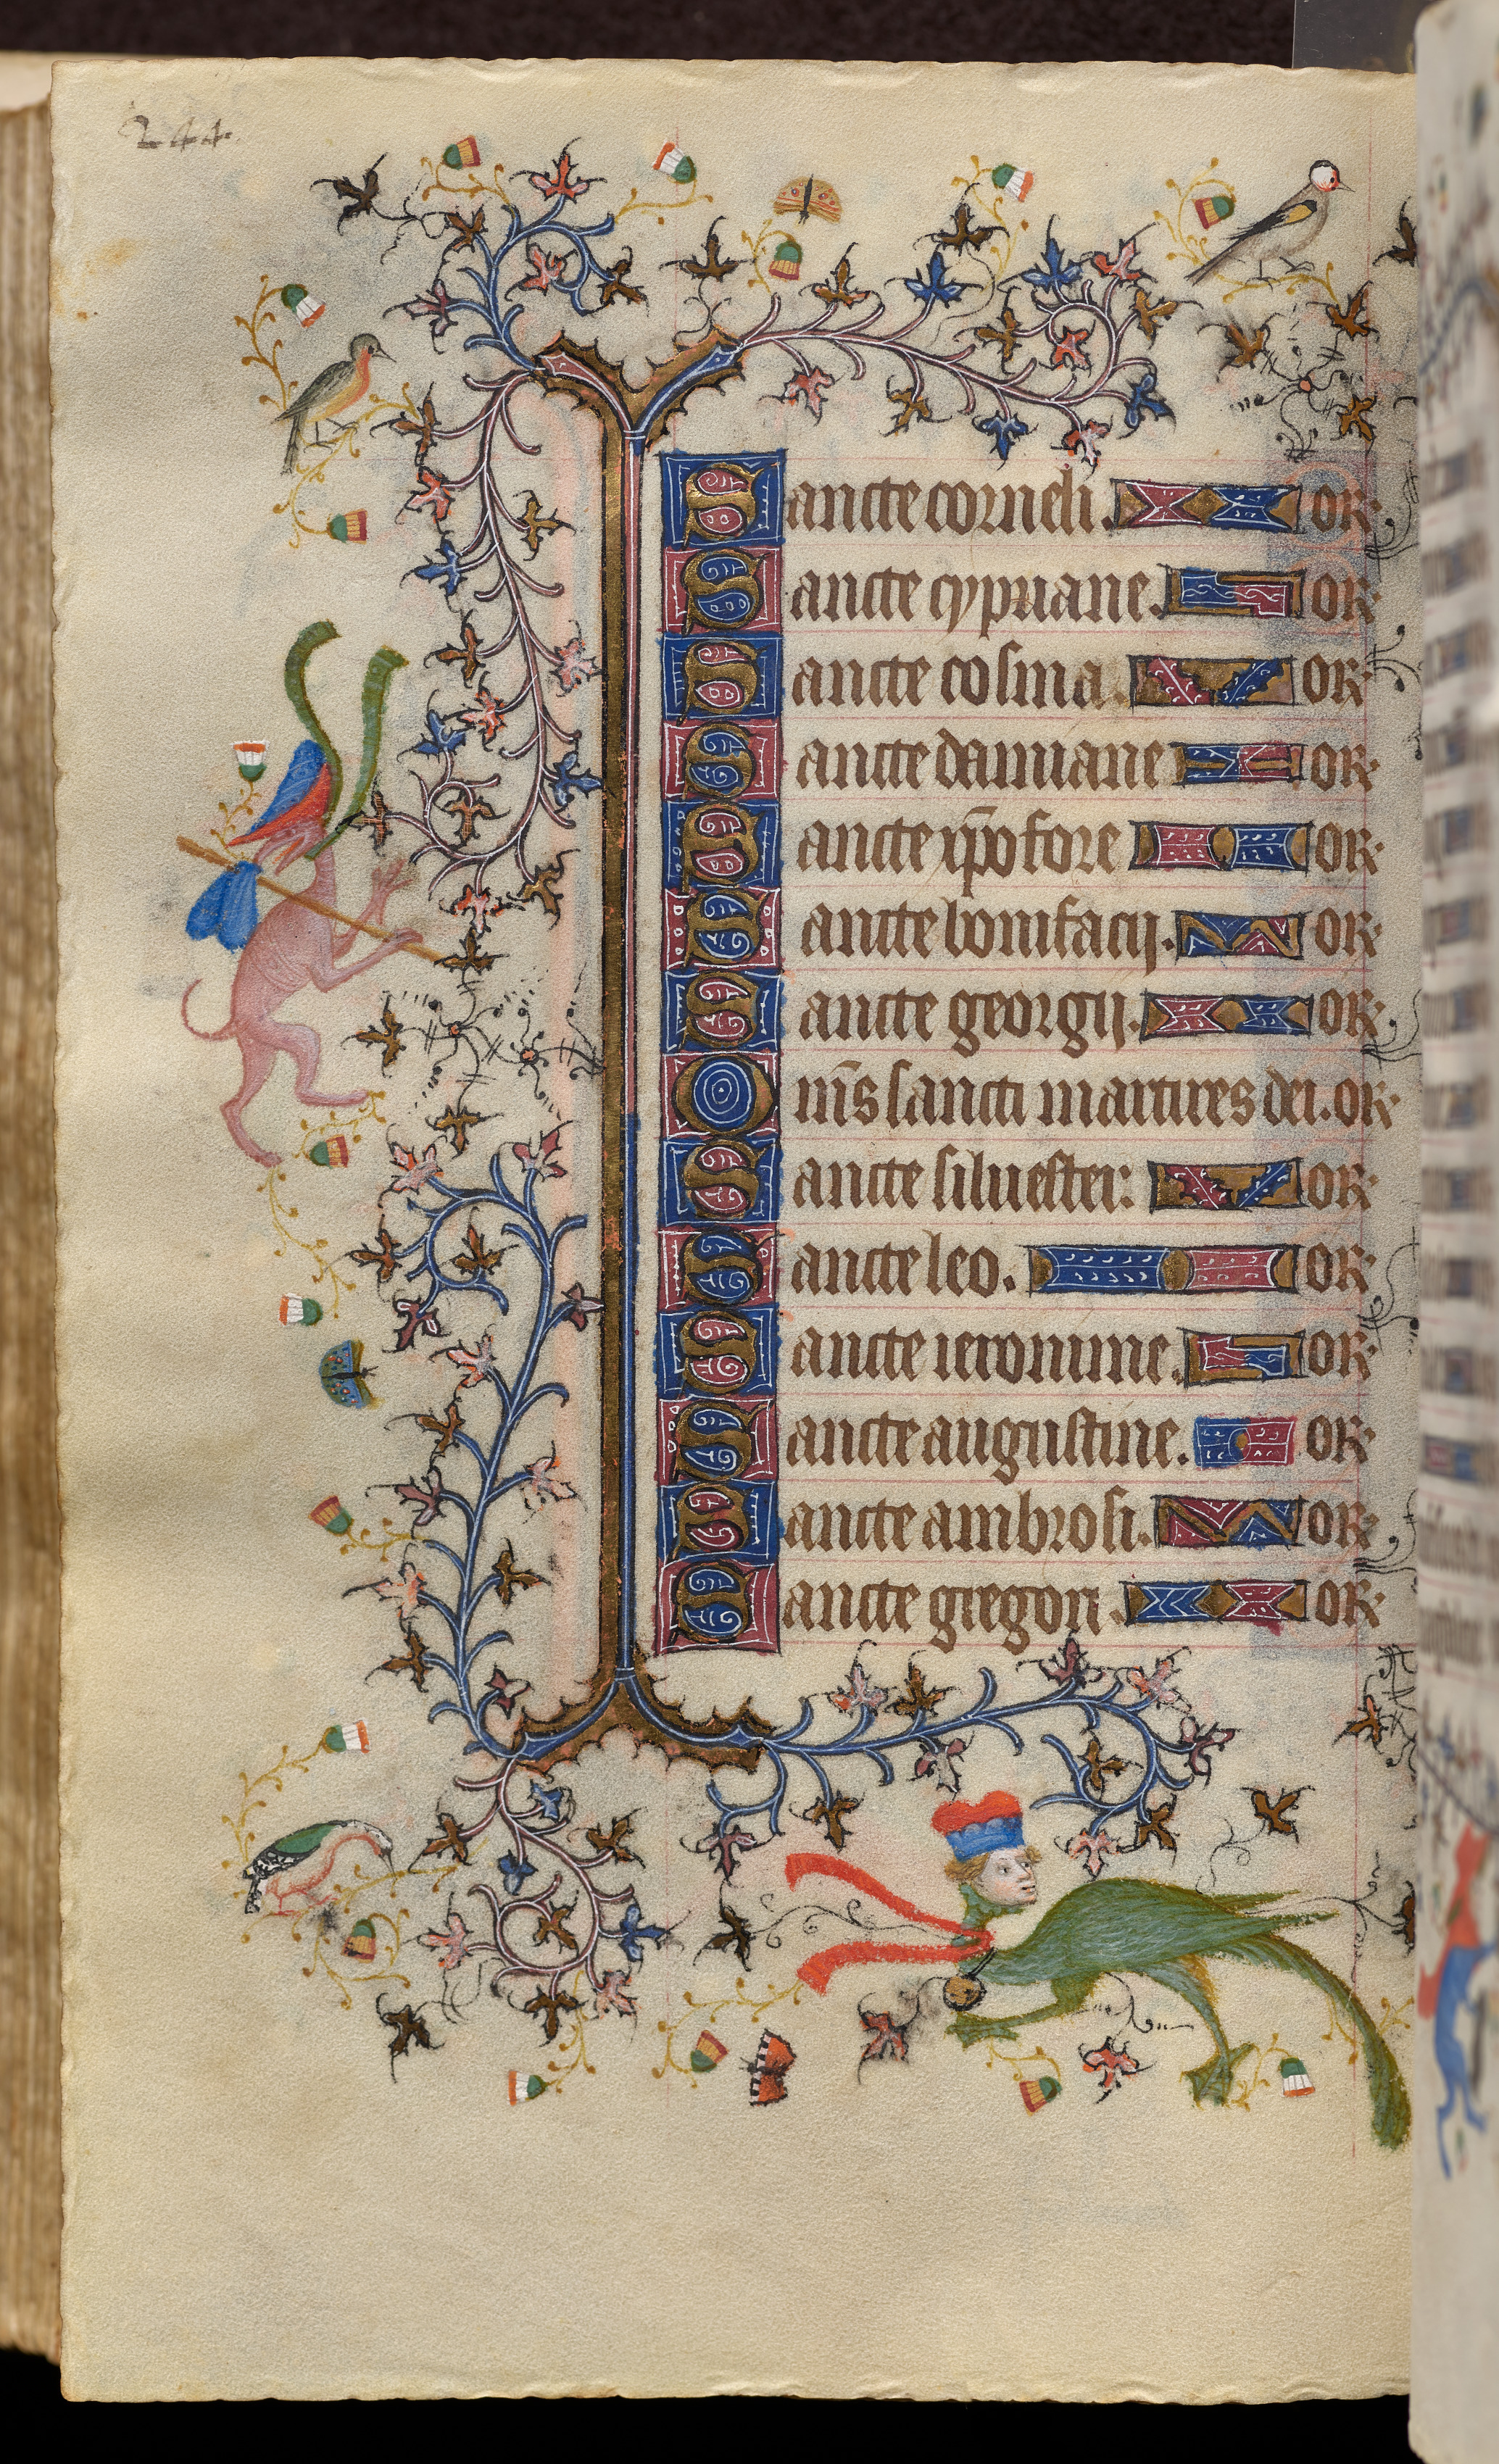 244.
Sancte corneli. or.
Sancte cypriane. or.
Sancte cosma. or.
Sancte damiane or.
Sancte xp̄ofore or.
Sancte bonifacij. or.
Sancte georgij. or.
Om̄s sancti martires dei. or.
Sancte siluester. or.
Sancte leo. or.
Sancte ieronime. or.
Sancte augustine. or.
Sancte ambrosi. or.
Sancte gregori. or.